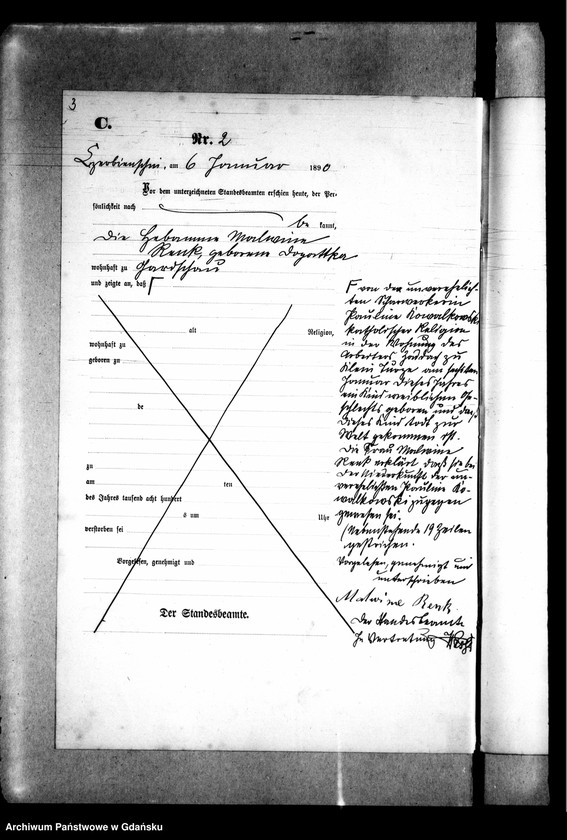 3
C.
Nr. 2
Czerbienschin, am 6 Januar 1890
Vor dem unterzeichneten Standesbeamten erschien heute, der Per-
sönlichkeit nach
be kannt,
die Hebamme Malwine
Renk, geborene
wohnhaft zu Gardschau
und zeigte an, daß Γ
alt Religion,
wohnhaft zu
geboren zu
de
zu
am ten
des Jahres tausend acht hundert
s um Uhr
verstorben sei
Vorgelesen, genehmigt und
Der Standesbeamte.
Γ von der unverehelich-
ten Scharwerkerin
Pauline Kowalkowski
katholischer Religion
in der Wohnung des
Arbeiters zu
Klein Turze am sechsten
Januar dieses Jahres
ein Kind weiblichen Ge-
schlechts geboren und daß
dieses Kind todt zur
Welt gekommen ist.
Die Frau Malwine
Renk erklärt daß sie bei
der Niederkunft der un-
verehelichten Pauline Ko-
walkowski zugegen
gewesen sei.
(Nebenstehende 19 Zeilen
gestrichen.
Vorgelesen, genehmigt und
unterschrieben
Malwine Renk.
Der Standesbeamte
In Vertretung
Archiwum Państwowe w Gdańsku